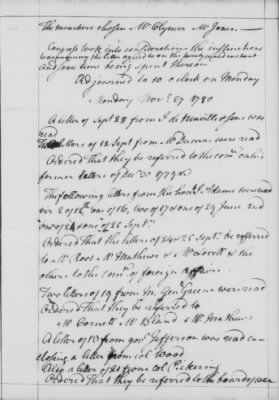 The members chosen Mr Clymer Mr Jones.
Congress took into consideration the instructions
accompanying the letter agreed to on the twenty second instant
and some time being spent thereon
Adjourned to 10 o Clock on Monday
Monday Novr. 27 1780
A letter of Sept 28 from J de Neufville & sons was
read
Two letters of 12 Sept from Mr Dumas were read
Ordered that they be referred to the comee. on his
former letters of
The following letters from the honble J. Adams were read
one of 24 & one of 25 Septr.
Ordered that the letters of 24 & 25 Septr. be referred
to Mr Root Mr Mathews & Mr Lovell & the
others to the comee of foreign affairs.
Two letters of 19 from M. Genl Greene were read
Ordered that they be referred to
Mr Cornell Mr Bland & Mr Mathews
A letter of 10 from govr Jefferson was read en-
closing a letter from col Wood
Also a letter of 21 from col Pickering
Ordered that they be referred to the board of war